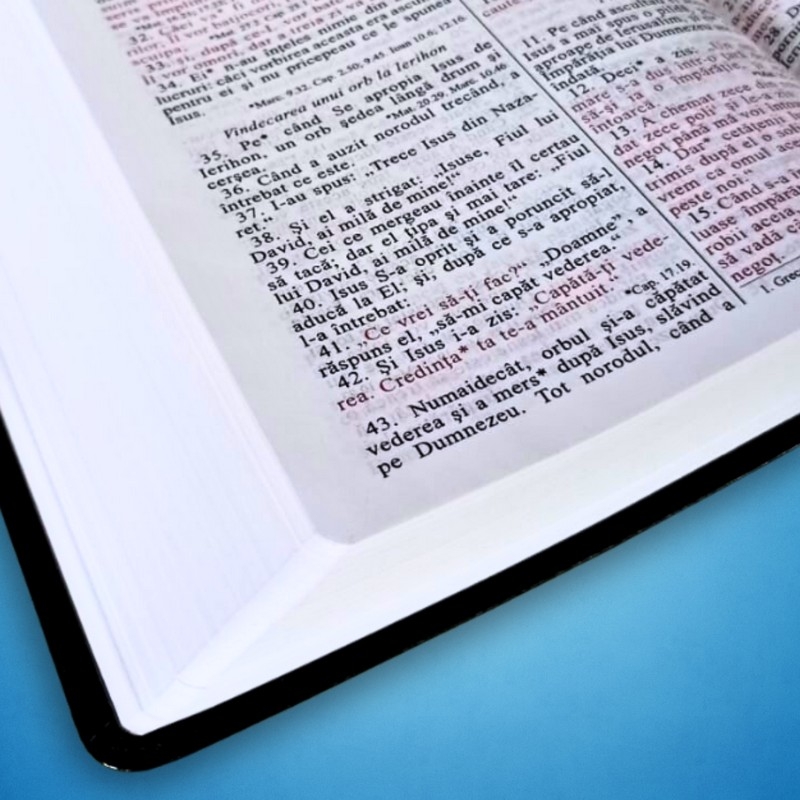 34. Ei* n-au înţeles nimic din aceste
lucruri: căci vorbirea aceasta era ascunsă
pentru ei şi nu pricepeau ce le spunea
Isus.
*Marc. 9.32. Cap. 2.50; 9.45. Ioan 10.6; 12.16.
Vindecarea unui orb la Ierihon
35. Pe* când Se apropia Isus de
Ierihon, un orb şedea lângă drum şi
cerşea.
*Mat. 20.29. Marc. 10.46.
36. Când a auzit norodul trecând, a
întrebat ce este.
37. I-au spus: „Trece Isus din Naza-
ret.”
38. Şi el a strigat: „Isuse, Fiul lui
David, ai milă de mine!”
39. Cei ce mergeau înainte îl certau
să tacă; dar el ţipa şi mai tare: „Fiul
lui David, ai milă de mine!”
40. Isus S-a oprit şi a poruncit să-l
aducă la El; şi, după ce s-a apropiat,
l-a întrebat:
41. „Ce vrei să-ţi fac?” „Doamne”, a
răspuns el, „să-mi capăt vederea.”
42. Şi Isus i-a zis: „Capătă-ţi vede-
rea. Credinţa* ta te-a mântuit.”
*Cap. 17.19.
43. Numaidecât, orbul şi-a căpătat
vederea şi a mers* după Isus, slăvind
pe Dumnezeu. Tot norodul, când a
11. Pe când
Isus a mai spus o
aproape de Ierusalim, şi
Împărăţia lui Dumne
îndată.
12. Deci* a zis:
mare s-a dus într-o
să-şi ia o împărăţie
întoarcă.
13. A chemat zece
dat zece poli şi le-a
negoţ până mă voi
14. Dar* cetăţenii
trimis după el o sol
vrem ca omul ace
peste noi.”
15. Când s-a în
uase împără
robii aceia,
să vadă câ
negoţ.
1. Grec